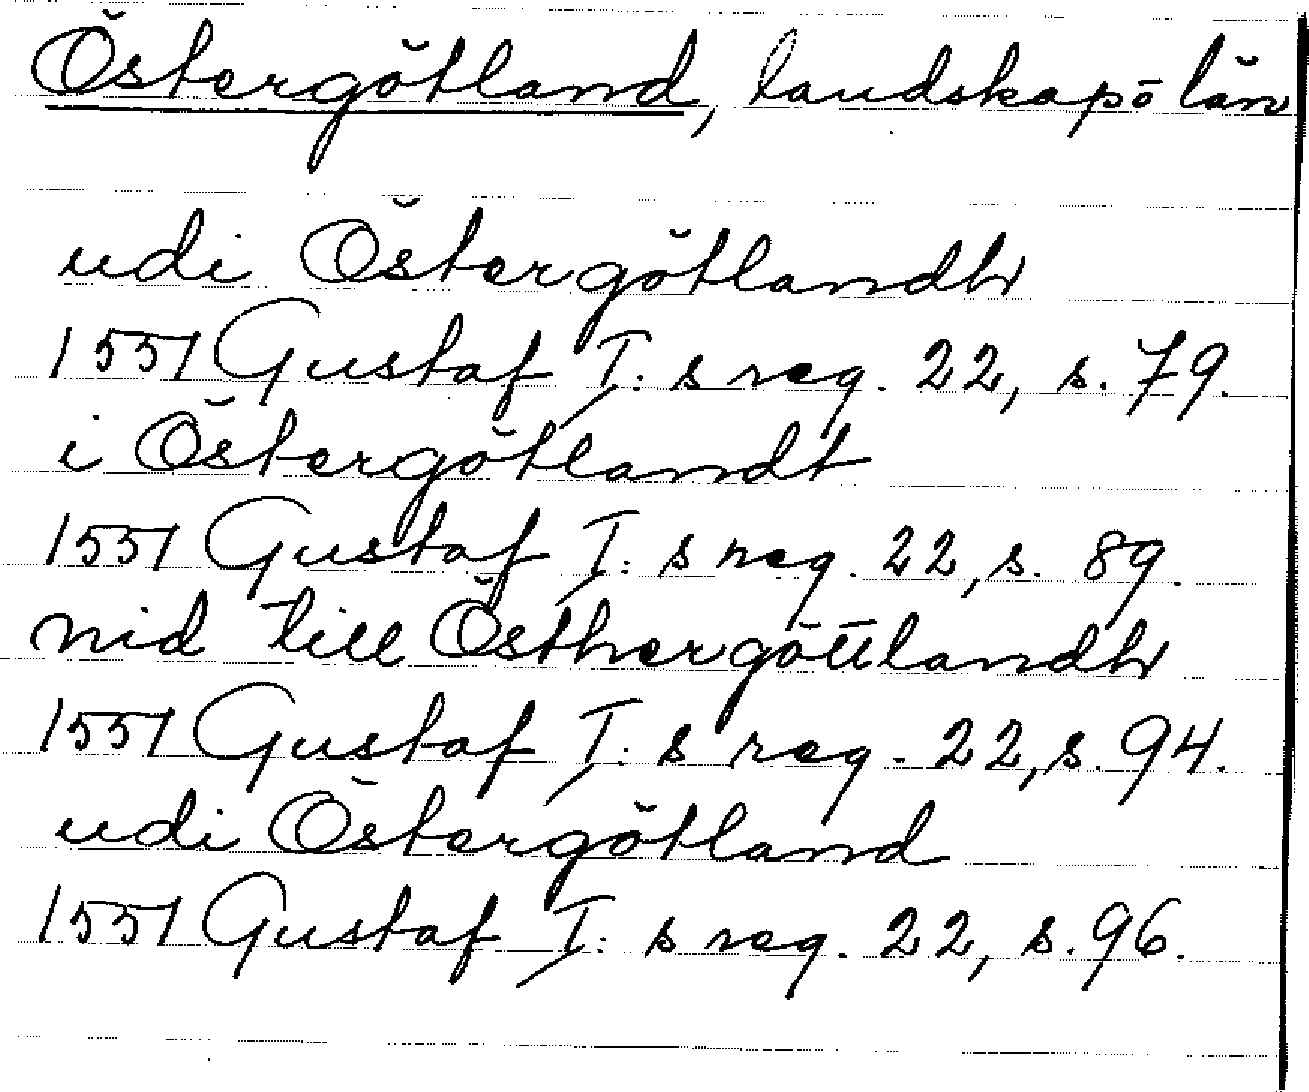 Östergötland, landskap o län
udi Östergötlandh
1551 Gustaf I: s reg. 22, s. 79.
i Östergötlandt
1551 Gustaf I: s reg. 22, s. 89.
nid till Österhergöttlandh
1551 Gustaf I: s reg. 22, s. 94.
udi Östergötland
1551 Gustaf I: s reg. 22, s. 96.